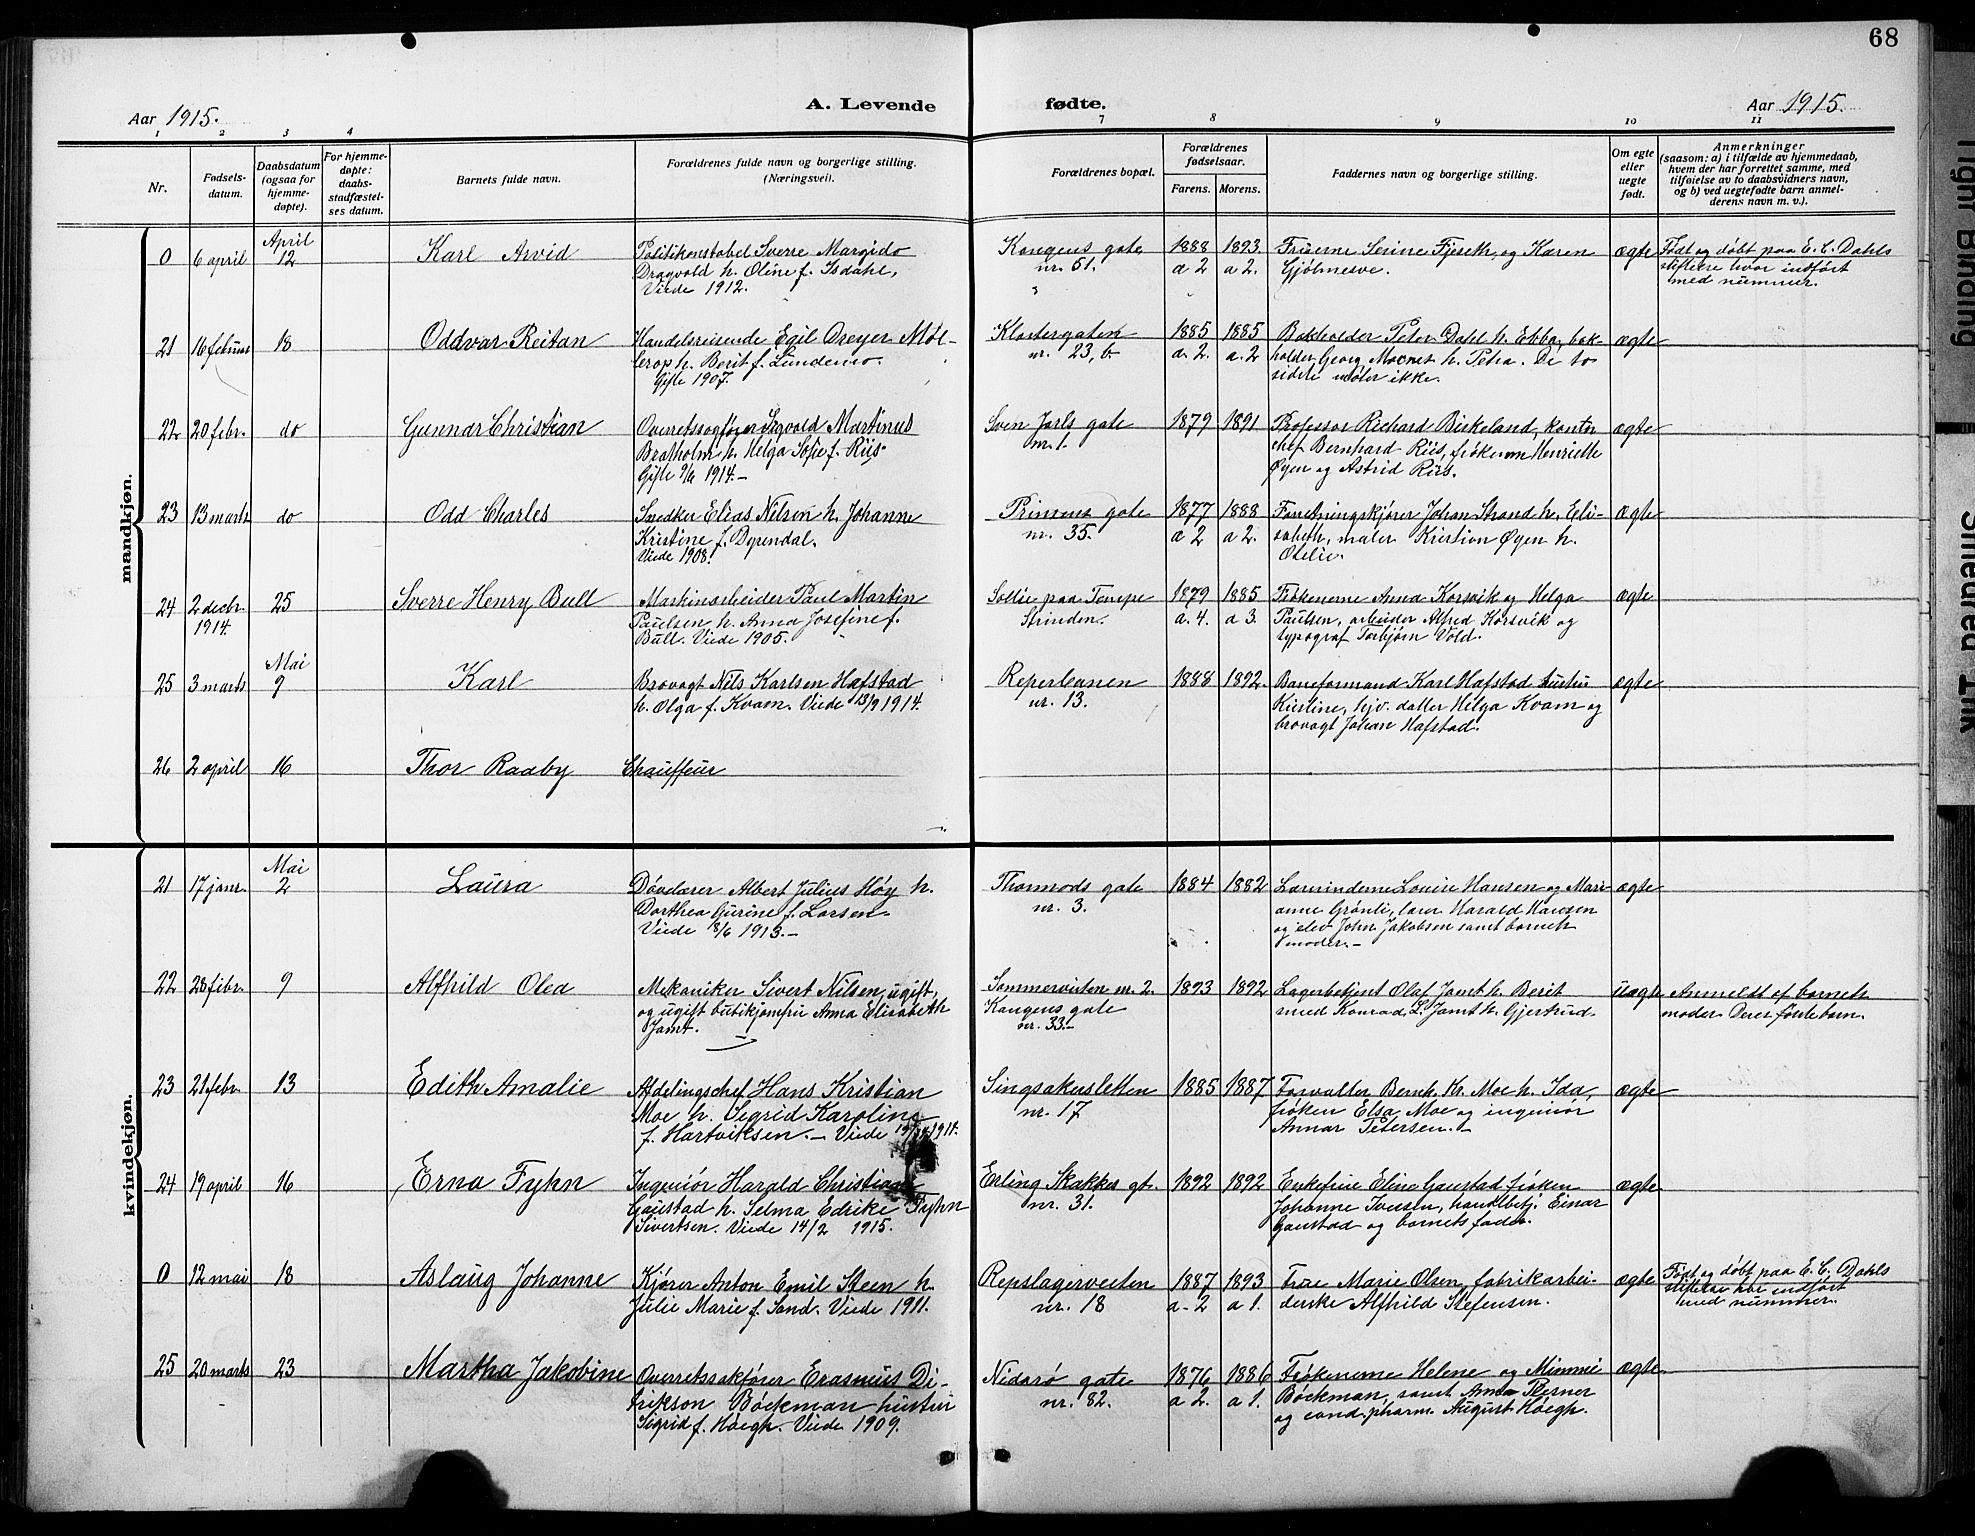 68
Aar 1915.
A. Levende
fødte.
Aar 1915.
1 2 3 4
7 8 9 10 11
Nr.
Fødsels-
datum.
Daabsdatum
(ogsaa for
hjemme-
døpte).
For hjemme-
døpte:
daabs-
stadfæstel-
ses datum.
Barnets fulde navn.
Forældrenes fulde navn og borgerlige stilling.
(Næringsvei).
Forældrenes bopæl.
Forældrenes
fødselsaar.
Farens. Morens.
Faddernes navn og borgerlige stilling.
Om egte
eller
uegte
født.
Anmerkninger
(saasom: a) i tilfælde av hjemmedaab,
hvem der har forrettet samme, med
tilføielse av to daabsvidners navn,
og b) ved uegtefødte barn anmel-
derens navn m. v.).
mandkjøn.
0 6 april April 12 Karl Arvid
Politikonstabel Sverre Margido
Dragvold h. Oline f. Isdahl,
Viede 1912.
Kongens gate
nr. 51.
1888 1893
a 2 a 2.
Fruerne Serine Fjeseth og Karen
Gjölmesve.
ægte
Født og døbt paa E. C. Dahls
stiftelse hvor indført
med nummer.
21 16 februar 18 Oddvar Reitan
Handelsreisende Egil Dreyer Møl-
lerop h. Berit f. Lundemo.
Gifte 1907.
Klostergaten
nr. 23, b
1885 1885
a. 2. a. 2
Bokholder Peter Dahl h. Ebba, bok-
holder Georg Moxnes h. Petra. De to
sidste møter ikke.
ægte
22 20 febr. do Gunnar Christian
Overretssagfører Sigvald Martinus
Bratholm h. Helga Sofie f. Riis.
Gifte 9/6 1914.-
Sven Jarls gate
nr. 1.
1879 1891
Professor Richard Birkeland, kontor
chef Bernhard Riis, frøknerne Henriette
Øyen og Astrid Riis.
ægte
23 13 marts do Odd Charles
Snedker Elias Nilsen h. Johanne
Kristine f. Dyrendal.
Viede 1908.
Prinsens gate
nr. 35.
1877 1888
a 2 a 2.
Forretningskjører Johan Strand h. Eli-
sabeth, maler Kristian Øyen h.
Otelie.
ægte
24 2 decbr. 1914. 25 Sverre Henry Bull
Maskinarbeider Paul Martin
Paulsen h. Anna Josefine f.
Bull. Viede 1905.
Sollie paa Tempe
Strinden.
1879 1885
a. 4. a 3.
Frøknerne Anna Korsvik og Helga
Paulsen, arbeider Alfred Korsvik og
typograf Torbjørn Vold.
ægte
25 3 marts Mai 9 Karl
Brovagt Nils Karlsen Hafstad
h. Olga f. Kvam. Viede 13/9 1914.
Reperbanen
nr. 13.
1888 1892.
Baneformand Karl Hafstad hustru
Kirstine, hjv. datter Helga Kvam og
brovagt Johan Hafstad.
ægte
26 2 april 16 Thor Raaby
Chauffeur
kvindekjøn.
21 17 janr. Mai 2 Laura
Døvelærer Albert Julius Høy h.
Dorthea Gurine f. Larsen.
Viede 18/6 1913.-
Thormods gate
nr. 3.
1884 1882
Lærerinderne Louise Hansen og Mari-
anne Grönli, lærer Harald Hansen
og elev John Jakobsen samt barnets
moder.-
ægte
22 28 febr. 9 Alfhild Olea
Mekaniker Sivert Nilsen, ugift,
og ugift butikjomfru Anna Elisabeth
Jamt.
Sommerveiten nr. 2.
Kongens gate
nr. 33.-
1893 1892
Lagerbetjent Olaf Jamt h. Berit
smed Konrad L. Jamt h. Gjertrud.
uægte
Anmeldt af barnets
moder. Deres første barn.
23 21 febr. 13 Edith Amalie
Afdelingschef Hans Kristian
Moe h. Sigrid Karoline
f. Hartviksen.- Viede 1911.
Singsakersletten
nr. 17
1885 1887
Forvalter Bernh. Kr. Moe h. Ida,
frøken Elsa Moe og ingeniør
Annar Petersen.-
ægte
24 19 april 16 Erna Fyhn
Ingeniør Harald Christian
Gaustad h. Selma Edrike Fyhn
Sivertsen. Viede 14/2 1915.
Erling Skakkes gt.
nr. 31.
1892 1892
Enkefrue Eline Gaustad frøken
Johanne Iversen, handlbetj. Einar
Gaustad og barnets fader.
ægte
0 12 mai 18 Aslaug Johanne
Kjører Anton Emil Steen h.
Julie Marie f. Sand. Viede 1911.
Repslagerveiten
nr. 18
1887 1893
a. 2 a 1.
Frue Marie Olsen, fabrikarbei-
derske Alfhild Stefensen.
ægte
Født og døbt paa E. C. Dahls
stiftelse hvor indført
med nummer.
25 20 marts 23 Martha Jakobine
Overretssakfører Erasmus Di-
trikson Bøckman hustru
Sigrid f. Høegh. Viede 1909.
Nidarø gate
nr. 82.
1876 1886
a 2. a 1.
Frøknerne Helene og Mimmi
Bøckman, samt Anna Berner
og cand. pharm. August Høegh.
ægte